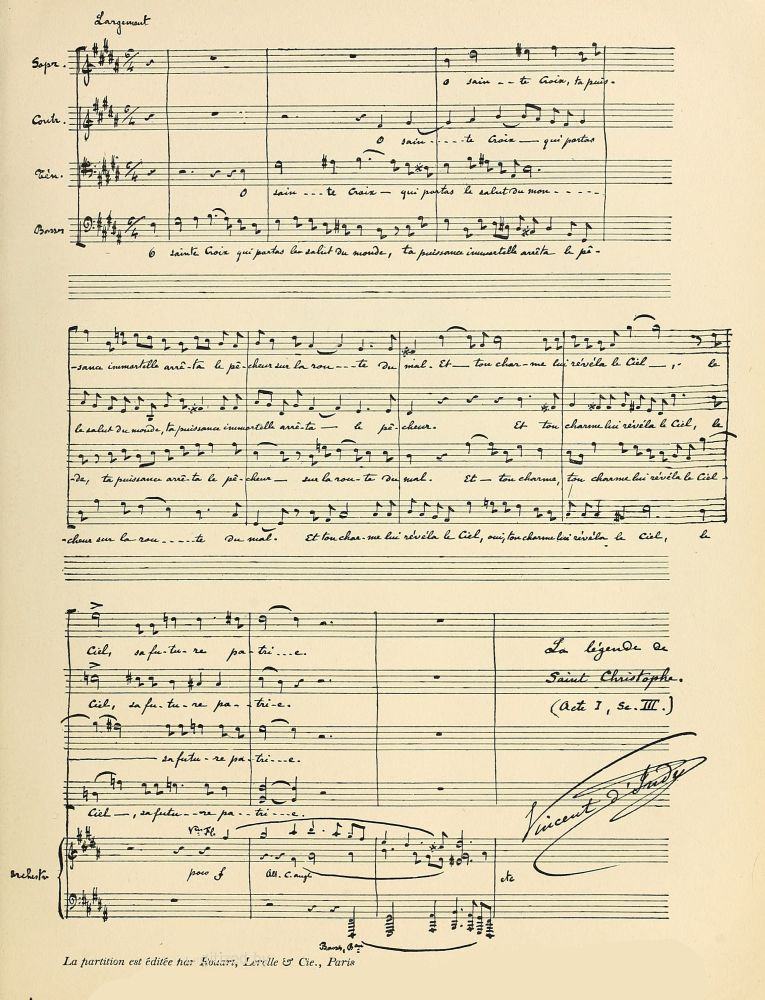 Largement
Sopr.
O sain - - te Croix, ta puis-
Contr.
O sain - - - - te Croix — qui portas
Tén.
O sain - - - te Croix — qui portas le salut du mon - - - - -
Basses
O sainte Croix qui portas le salut du monde, ta puissance immortelle arrêta le pê-
-sance immortelle arrê-ta le pê-cheur sur la rou - - - te du mal. Et — ton char-me lui révéla le Ciel —, le
le salut du monde, ta puissance immortelle arrê-ta — le pê-cheur. Et ton charme lui révéla le Ciel, le
-de, ta puissance arrê-ta le pê-cheur — sur la rou-te du mal. Et — ton charme, ton charme lui révéla le Ciel
-cheur sur la rou - - - - te du mal. Et ton char-me lui révéla le Ciel, oui, ton charme lui révéla le Ciel, le
Ciel, sa fu-tu-re pa-tri---e.
Ciel, sa fu-tu-re pa--tri-e.
sa futu--re pa-tri---e.
Ciel —, sa futu--re pa--tri--e.
La légende de
Saint Christophe.
(Acte I, Sc. III.)
Vincent d'Indy
Orchestre
poco f
etc
La partition est éditée par Rouart, Lerolle & Cie., Paris